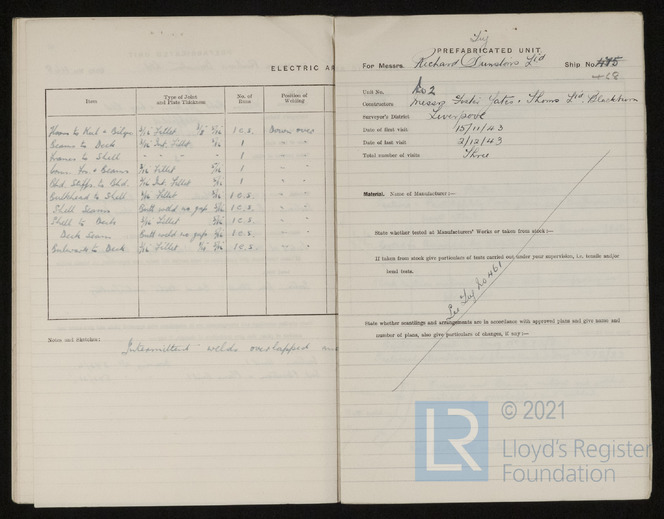 ELECTRIC AR
Item
Type of Joint
and Plate Thickness
No. of
Runs
Position of
Welding
Floors to Keel & Bilges 3/16 Fillet 1 C.S. Down over
Beams to Deck Int. Fillet 1 " "
Frames to Shell " " " " 1 " "
& Beams Fillet 1 " "
Bhd. Stiffs. to Bhd. Int. Fillet 1 " "
Bulkhead to Shell Fillet 1 C.S. " "
Shell Seams Butt weld no gap 1 C.S. " "
Shell to Deck Fillet 1 C.S. " "
Deck Seams Butt weld no gap 1 C.S. " "
Bulwark to Deck Fillet 1 C.S. " "
Notes and Sketches:
"Intermittent" welds overlapped
Tug
PREFABRICATED UNIT
For Messrs. Richard Dunstons Ltd Ship No. 415
468
Unit No. No 2
Constructors Messrs Foster Yates & Thoms Ltd. Blackburn
Surveyor's District Liverpool
Date of first visit 15/11/43
Date of last visit 2/12/43
Total number of visits Three
Material. Name of Manufacturer:—
State whether tested at Manufacturers' Works or taken from stock:—
If taken from stock give particulars of tests carried out under your supervision, i.e. tensile and/or
bend tests.
See Tug No 461
State whether scantlings and arrangements are in accordance with approved plans and give name and
number of plans, also give particulars of changes, if any:—
LR
© 2021
Lloyd's Register
Foundation